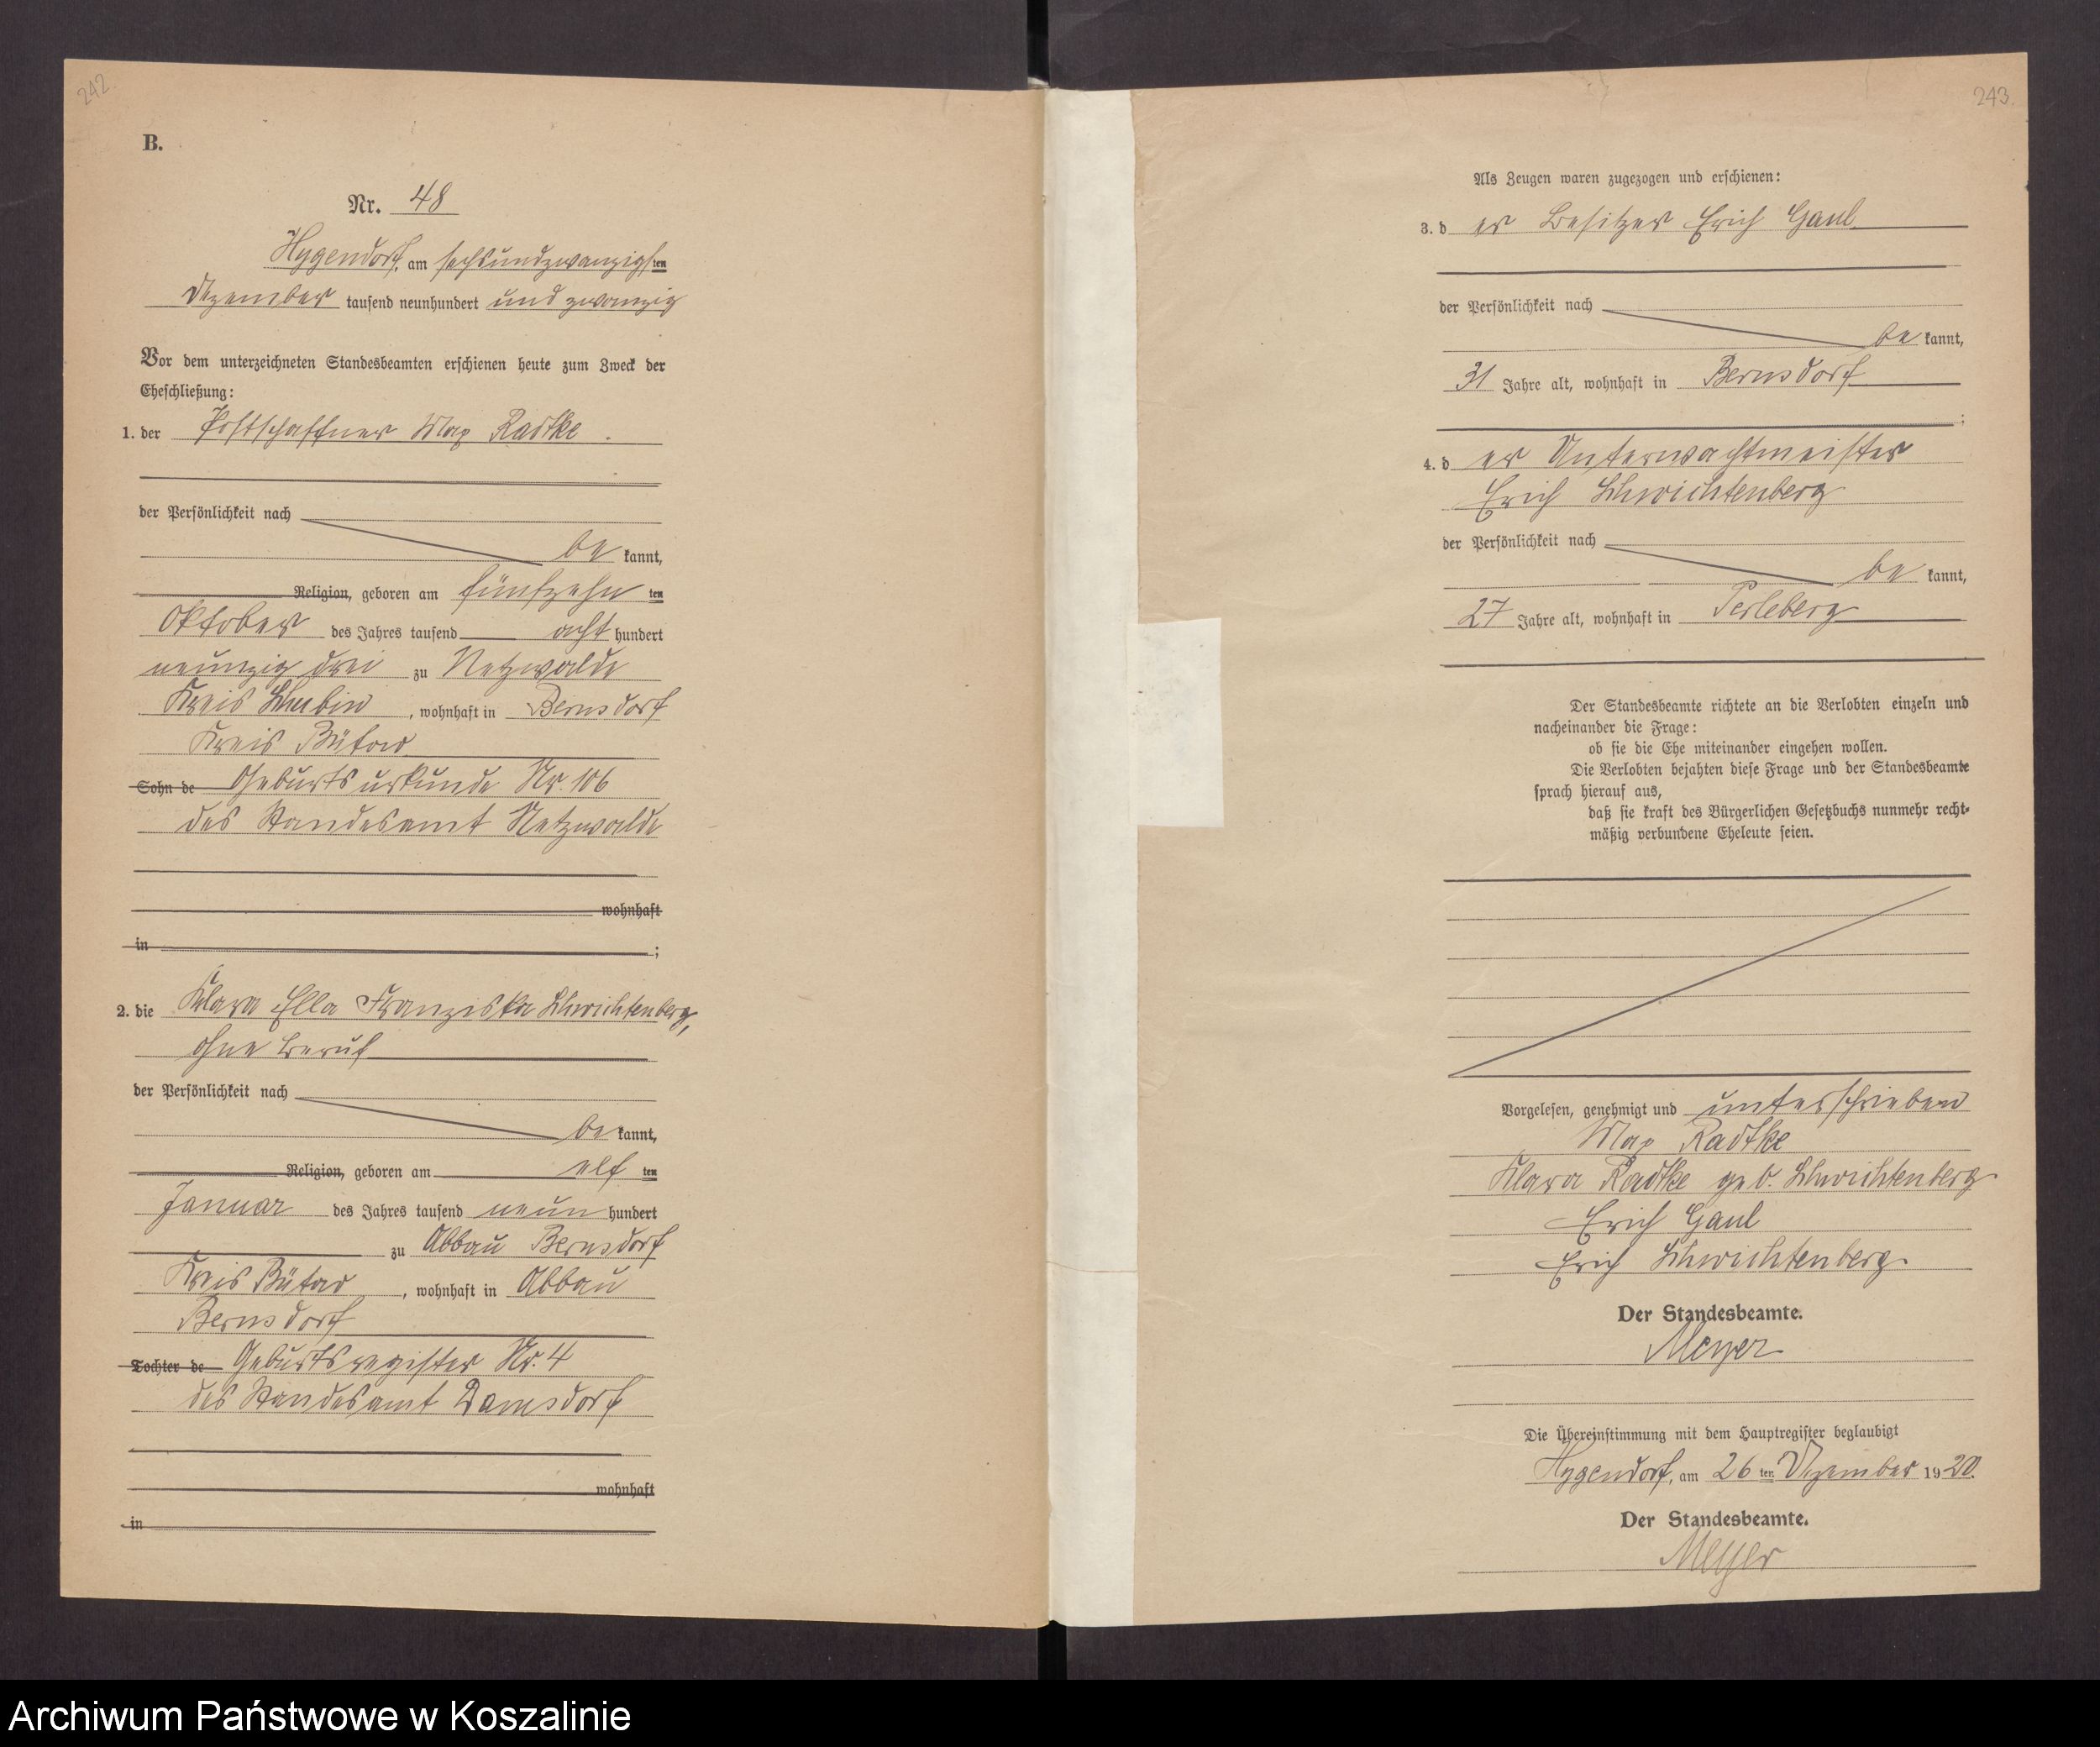 242.
B.
Nr. 48
Hygendorf, am sechsundzwanzigsten
Dezember tausend neunhundert und zwanzig
Vor dem unterzeichneten Standesbeamten erschienen heute zum Zweck der
Eheschließung:
1. der Postschaffner Max Radtke.
der Persönlichkeit nach
be kannt,
Religion, geboren am fünfzehn ten
Oktober des Jahres tausend acht hundert
neunzig drei zu Netzwalde
Kreis Schubin, wohnhaft in Bernsdorf
Kreis Bütow
Sohn de Geburtsurkunde Nr. 106
des Standesamt Netzwalde
wohnhaft
in ;
2. die Klara Ella Franziska Schwichtenberg,
ohne Beruf
der Persönlichkeit nach
be kannt,
Religion, geboren am elf ten
Januar des Jahres tausend neun hundert
zu Abbau Bernsdorf
Kreis Bütow, wohnhaft in Abbau
Bernsdorf
Tochter de Geburtsregister Nr. 4
des Standesamt Damsdorf
wohnhaft
in
243.
Als Zeugen waren zugezogen und erschienen:
3. d er Besitzer Erich Gaul
der Persönlichkeit nach
be kannt,
31 Jahre alt, wohnhaft in Bernsdorf
;
4. d er Unterwachtmeister
Erich Schwichtenberg
der Persönlichkeit nach
be kannt,
27 Jahre alt, wohnhaft in Perleberg
Der Standesbeamte richtete an die Verlobten einzeln und
nacheinander die Frage:
ob sie die Ehe miteinander eingehen wollen.
Die Verlobten bejahten diese Frage und der Standesbeamte
sprach hierauf aus,
daß sie kraft des Bürgerlichen Gesetzbuchs nunmehr recht-
mäßig verbundene Eheleute seien.
Vorgelesen, genehmigt und unterschrieben
Max Radtke
Klara Radtke geb. Schwichtenberg
Erich Gaul
Erich Schwichtenberg
Der Standesbeamte.
Meyer
Die Übereinstimmung mit dem Hauptregister beglaubigt
Hygendorf, am 26 ten Dezember 1920.
Der Standesbeamte.
Meyer
Archiwum Państwowe w Koszalinie